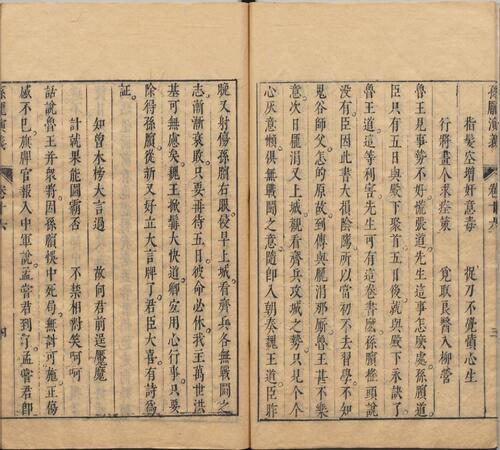 孫龐演義 卷十六 三
指髮空增奸意毒 捉刀不覺痛心生
行將畫个求痊策 覓取良醫入柳營
魯王見事勢不好慌張道先生這事怎麼處孫臏道
臣只有五日與殿下聚首五日後就與殿下永訣了
魯王道這等利害先生可有這卷書麼孫臏搖頭說
没有臣因此書大損陰騭所以當初不去習學不知
鬼谷師父怎的原故到傳與龐涓那廝魯王甚不樂
意次日龐涓又上城觀看齊兵攻城之勢只見个个
心灰意懶俱無戰鬪之意隨即入朝奏魏王道臣昨
晚又射傷孫臏右眼侵早上城看齊兵各無戰鬪之
志漸漸衰敗只要再待五日彼命必休我主萬世洪
基可無慮矣魏王掀髯大快道卿宜用心行事只要
除得孫臏從新又好立大言牌了君臣大喜有詩為
証
知曾木榜大言過 故向君前逞魘魔
計就果能圖霸否 不禁相對笑呵呵
話說魯王并衆將因孫臏悞中死局無計可施正傷
感不已旗牌官報入中軍說孟嘗君到了孟嘗君卽
孫龐演義 卷十六 四